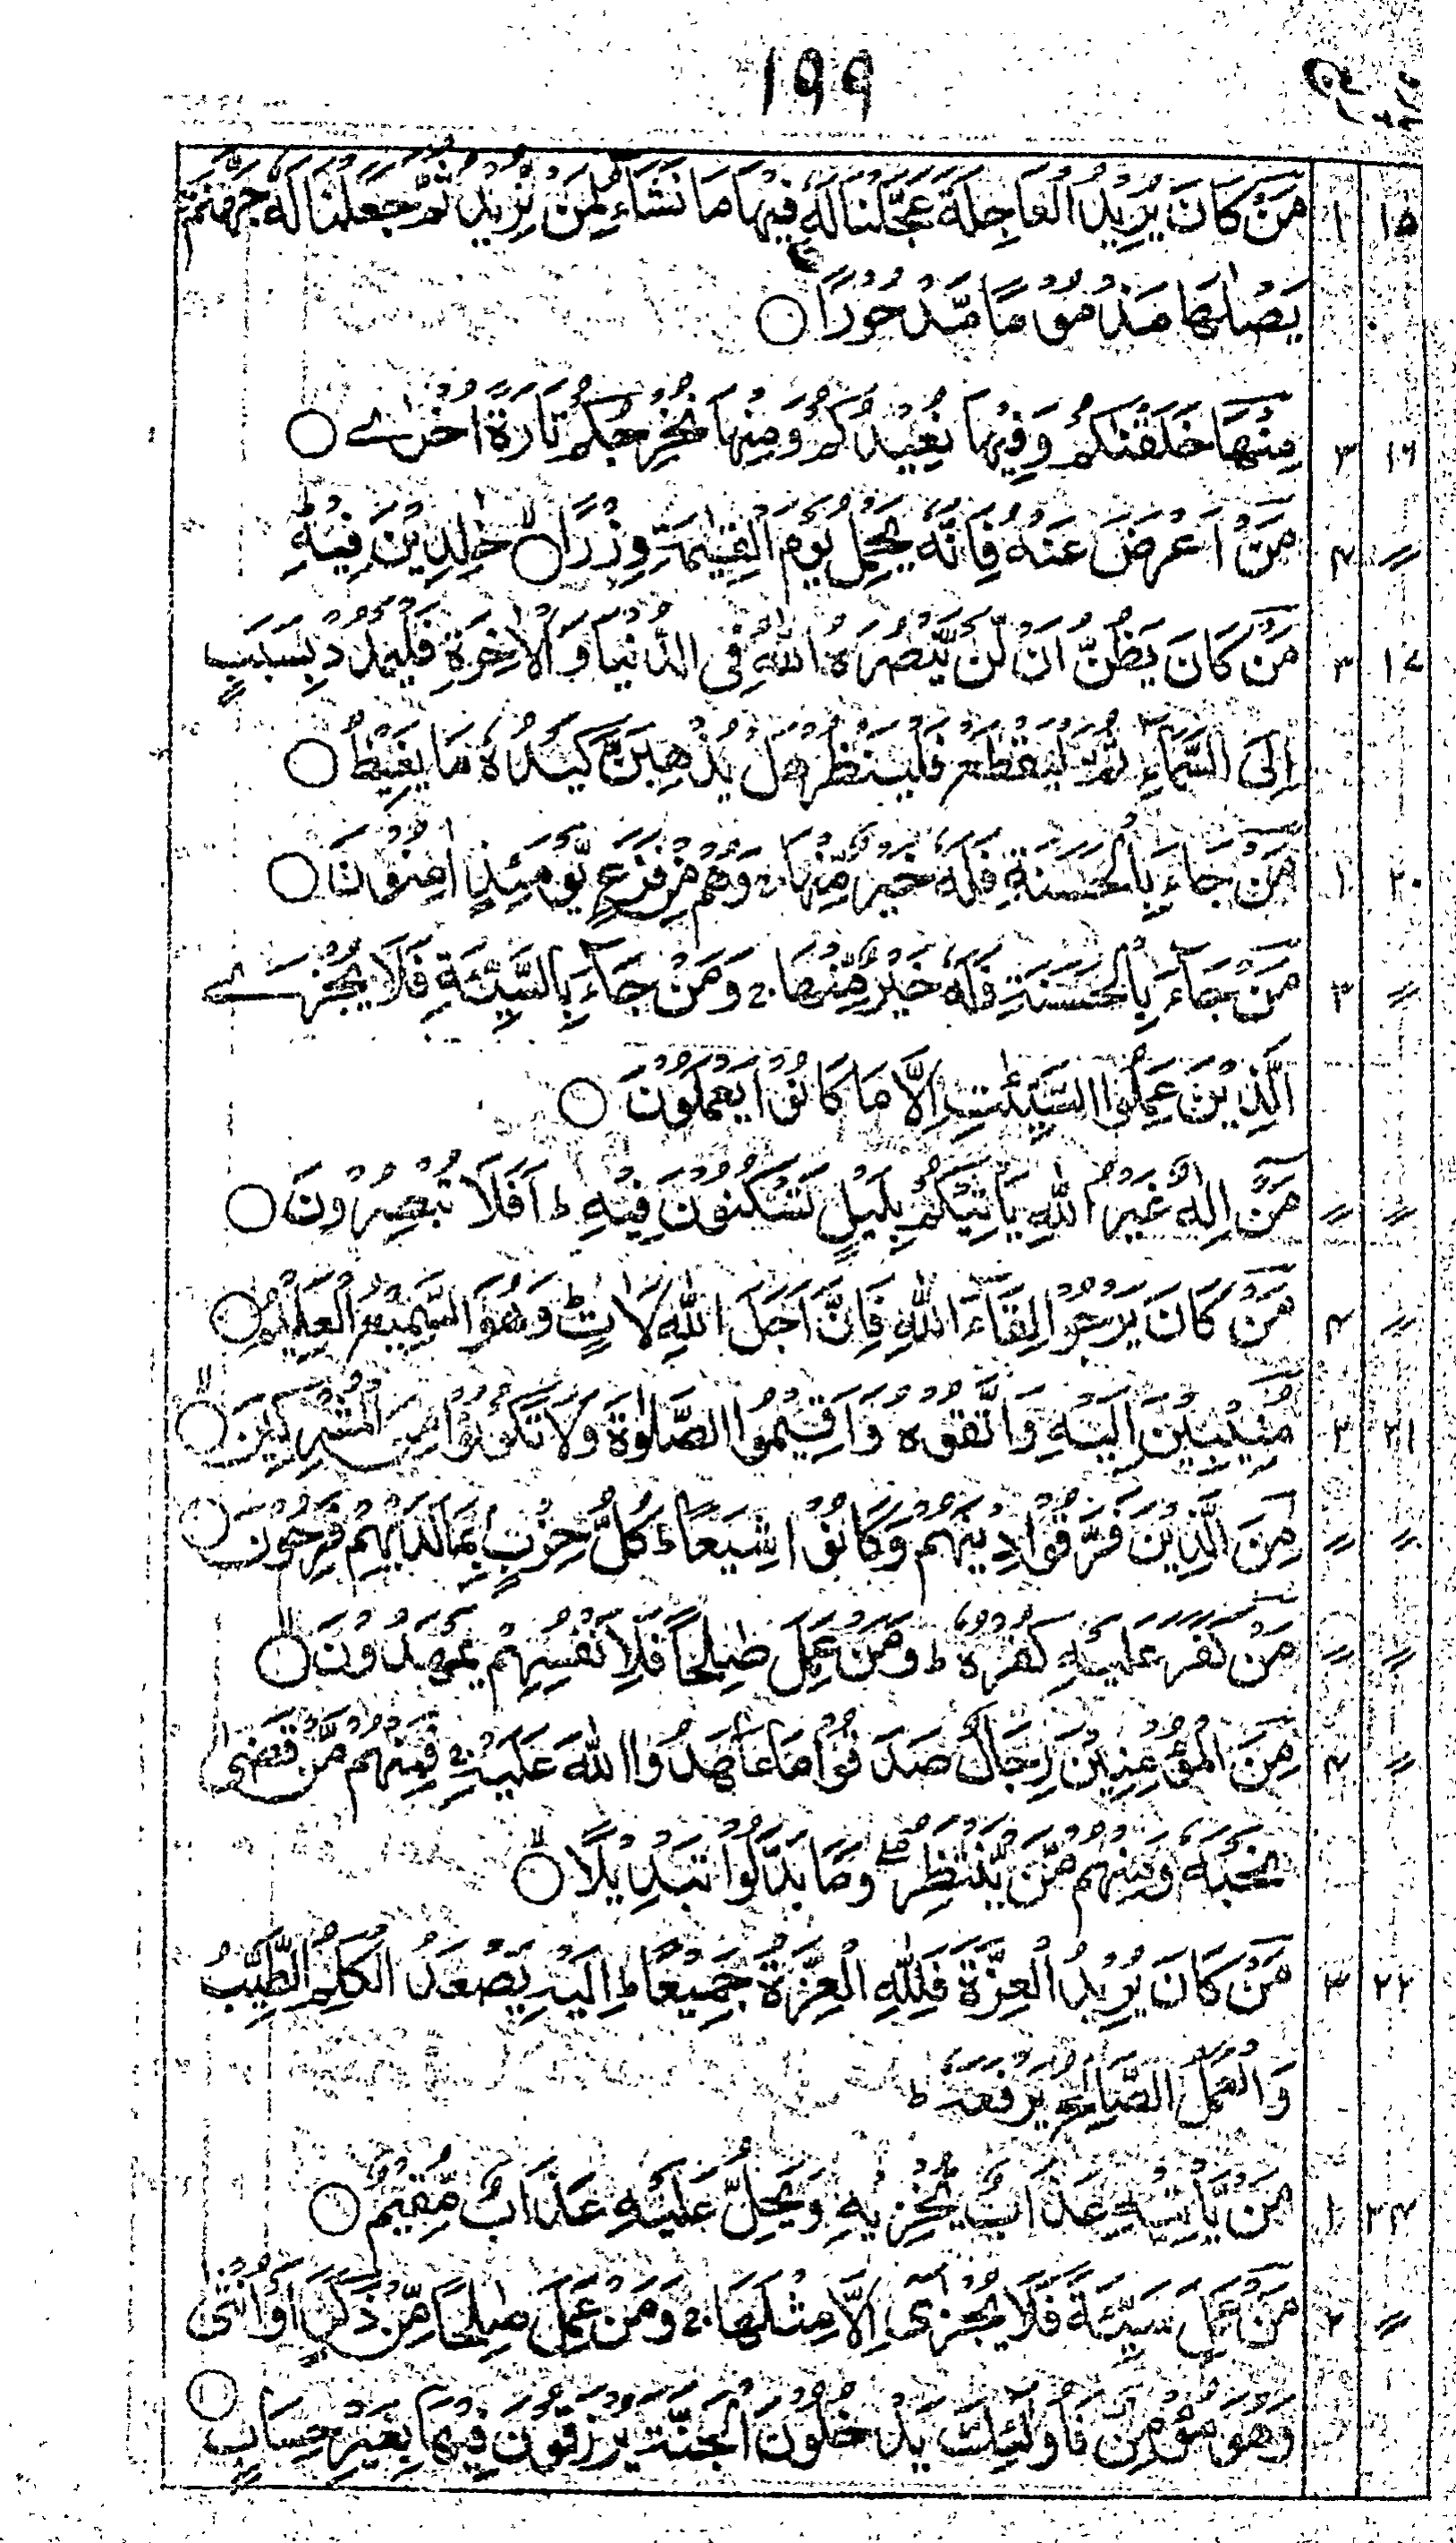 ۱۹۹
۱۵ ۱ مَنْ كَانَ يُرِيْدُ الْعَاجِلَةَ عَجَّلْنَا لَهٗ فِيْهَا مَا نَشَآءُ لِمَنْ نُّرِيْدُ ثُمَّ جَعَلْنَا لَهٗ جَهَنَّمَ
يَصْلٰىهَا مَذْمُوْمًا مَّدْحُوْرًا ○
۱۶ ۳ مِنْهَا خَلَقْنٰكُمْ وَفِيْهَا نُعِيْدُكُمْ وَمِنْهَا نُخْرِجُكُمْ تَارَةً اُخْرٰے ○
〃 ۴ مَنْ اَعْرَضَ عَنْهُ فَاِنَّهٗ يَحْمِلُ يَوْمَ الْقِيٰمَةِ وِزْرًا ○ۙ خٰلِدِيْنَ فِيْهِ ؕ
۱۷ ۳ مَنْ كَانَ يَظُنُّ اَنْ لَّنْ يَّنْصُرَهُ اللّٰهُ فِى الدُّنْيَا وَالْاٰخِرَةِ فَلْيَمْدُدْ بِسَبَبٍ
اِلَى السَّمَآءِ ثُمَّ لْيَقْطَعْ فَلْيَنْظُرْ هَلْ يُذْهِبَنَّ كَيْدُهٗ مَا يَغِيْظُ ○
۲۰ ۱ مَنْ جَآءَ بِالْحَسَنَةِ فَلَهٗ خَيْرٌ مِّنْهَا ۚ وَهُمْ مِّنْ فَزَعٍ يَّوْمَئِذٍ اٰمِنُوْنَ ○
〃 ۳ مَنْ جَآءَ بِالْحَسَنَةِ فَلَهٗ خَيْرٌ مِّنْهَا ۚ وَمَنْ جَآءَ بِالسَّيِّئَةِ فَلَا يُجْزَے
الَّذِيْنَ عَمِلُوا السَّيِّئٰتِ اِلَّا مَا كَانُوْا يَعْمَلُوْنَ ○
〃 〃 مَنْ اِلٰهٌ غَيْرُ اللّٰهِ يَاْتِيْكُمْ بِلَيْلٍ تَسْكُنُوْنَ فِيْهِ ؕ اَفَلَا تُبْصِرُوْنَ ○
〃 ۴ مَنْ كَانَ يَرْجُوْا لِقَآءَ اللّٰهِ فَاِنَّ اَجَلَ اللّٰهِ لَاٰتٍ ؕ وَهُوَ السَّمِيْعُ الْعَلِيْمُ ○
۲۱ ۳ مُنِيْبِيْنَ اِلَيْهِ وَاتَّقُوْهُ وَاَقِيْمُوا الصَّلٰوةَ وَلَا تَكُوْنُوْا مِنَ الْمُشْرِكِيْنَ ○ۙ
〃 〃 مِنَ الَّذِيْنَ فَرَّقُوْا دِيْنَهُمْ وَكَانُوْا شِيَعًا ؕ كُلُّ حِزْبٍۢ بِمَا لَدَيْهِمْ فَرِحُوْنَ ○
〃 〃 مَنْ كَفَرَ عَلَيْهِ كُفْرُهٗ ؕ وَمَنْ عَمِلَ صٰلِحًا فَلِاَنْفُسِهِمْ يَمْهَدُوْنَ ○ۙ
〃 ۴ مِنَ الْمُؤْمِنِيْنَ رِجَالٌ صَدَقُوْا مَا عَاهَدُوا اللّٰهَ عَلَيْهِ ۚ فَمِنْهُمْ مَّنْ قَضٰى
نَحْبَهٗ وَمِنْهُمْ مَّنْ يَّنْتَظِرُ ۖ وَمَا بَدَّلُوْا تَبْدِيْلًا ○ۙ
۲۲ ۳ مَنْ كَانَ يُرِيْدُ الْعِزَّةَ فَلِلّٰهِ الْعِزَّةُ جَمِيْعًا ؕ اِلَيْهِ يَصْعَدُ الْكَلِمُ الطَّيِّبُ
وَالْعَمَلُ الصَّالِحُ يَرْفَعُهٗ ؕ
۲۴ ۱ مَنْ يَّاْتِيْهِ عَذَابٌ يُّخْزِيْهِ وَيَحِلُّ عَلَيْهِ عَذَابٌ مُّقِيْمٌ ○
〃 ۲ مَنْ عَمِلَ سَيِّئَةً فَلَا يُجْزٰٓى اِلَّا مِثْلَهَا ۚ وَمَنْ عَمِلَ صٰلِحًا مِّنْ ذَكَرٍ اَوْ اُنْثٰى
وَهُوَ مُؤْمِنٌ فَاُولٰٓئِكَ يَدْخُلُوْنَ الْجَنَّةَ يُرْزَقُوْنَ فِيْهَا بِغَيْرِ حِسَابٍ ○